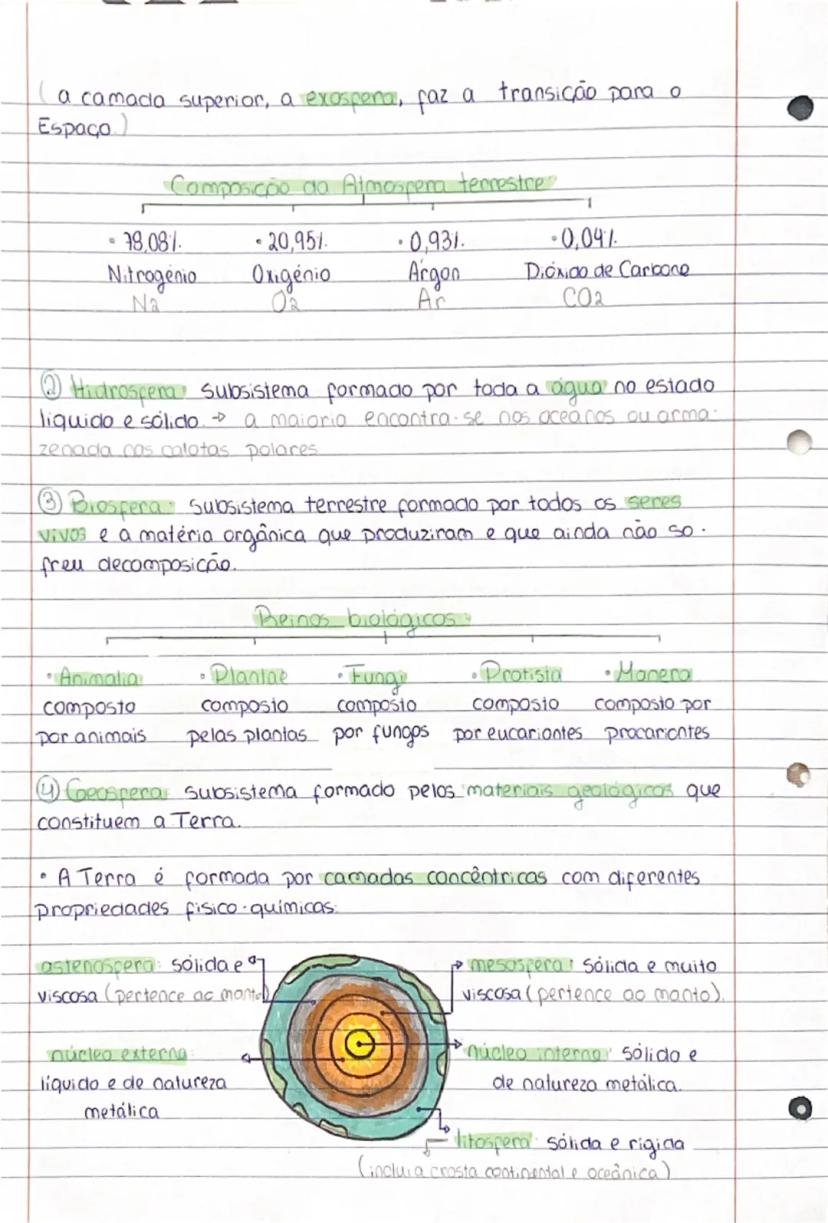 (a camada superior, a exosfera, faz a transição para o
Espaço)
Composição da Atmosfera terrestre:
• 78,08% • 20,95% • 0,93% • 0,04%
Nitrogénio Oxigénio Árgon Dióxido de Carbono
N2 O2 Ar CO2
② Hidrosfera: subsistema formado por toda a água no estado
líquido e sólido → a maioria encontra-se nos oceanos ou arma-
zenada nas calotas polares
③ Biosfera: subsistema terrestre formado por todos os seres
vivos e a matéria orgânica que produziram e que ainda não so-
freu decomposição.
Reinos biológicos:
• Animalia • Plantae • Fungi • Protista • Monera
composto composto composto composto composto por
por animais pelas plantas por fungos por eucariontes procariontes
④ Geosfera: subsistema formado pelos materiais geológicos que
constituem a Terra.
• A Terra é formada por camadas concêntricas com diferentes
propriedades físico-químicas:
astenosfera: sólida e
viscosa (pertence ao manto)
mesosfera: sólida e muito
viscosa (pertence ao manto).
núcleo externo:
líquido e de natureza
metálica
núcleo interno: sólido e
de natureza metálica.
litosfera: sólida e rígida
(inclui a crosta continental e oceânica)